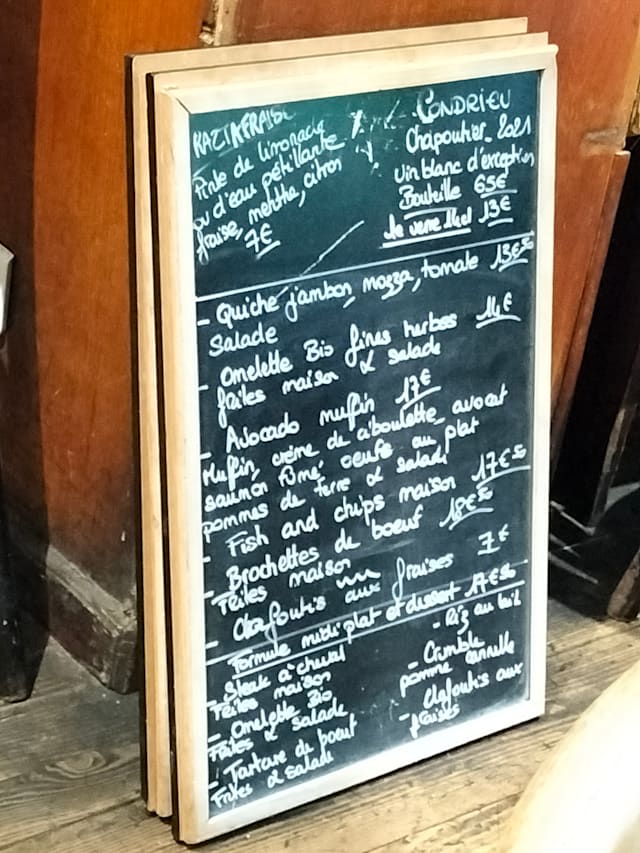 KAZIKFRAISE
Pinte de limonade
ou d'eau pétillante
fraise, menthe, citron
7€
CONDRIEU
Chapoutier 2021
vin blanc d'exception
Bouteille 65€
le verre 14cl 13€
- Quiche jambon, mozza, tomate 13€50
Salade
- Omelette Bio fines herbes 14€
faites maison & salade
- Avocado muffin 17€
Muffin, crème de ciboulette avocat
saumon fumé oeufs au plat
pommes de terre & salade
- Fish and chips maison 17€50
- Brochettes de boeuf 18€50
Frites maison
- Clafoutis aux fraises 7€
Formule midi plat et dessert 17€50
- Steak à cheval
Frites maison
- Omelette Bio
Frites & salade
- Tartare de boeuf
Frites & Salade
- Riz au lait
- Crumble
pomme cannelle
- Clafoutis aux
fraises